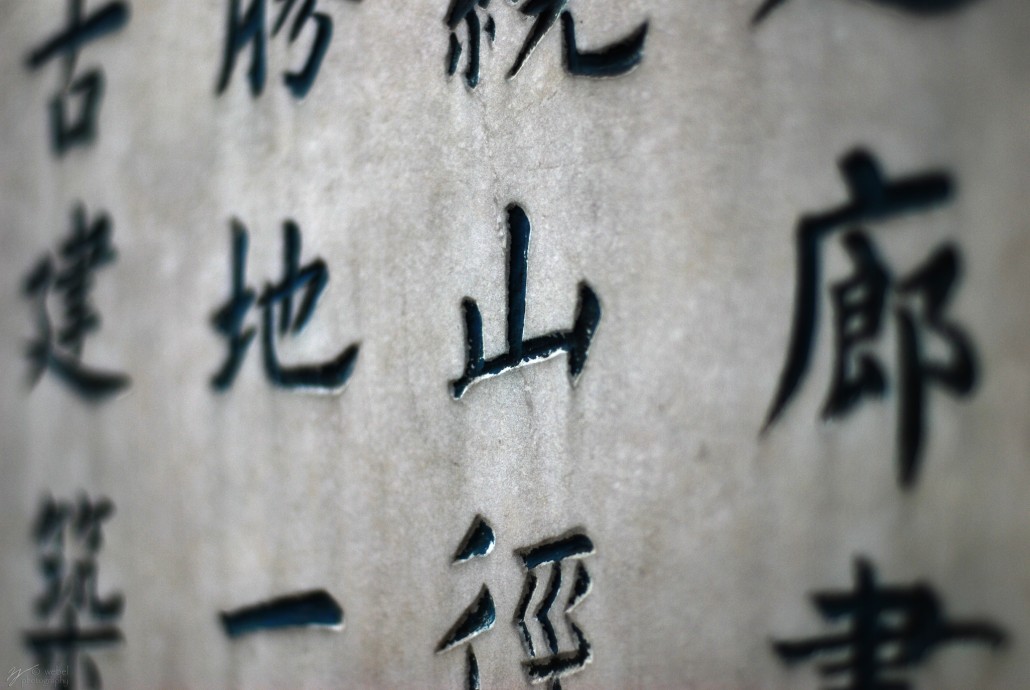 廊書
山徑
勝地一
古建築